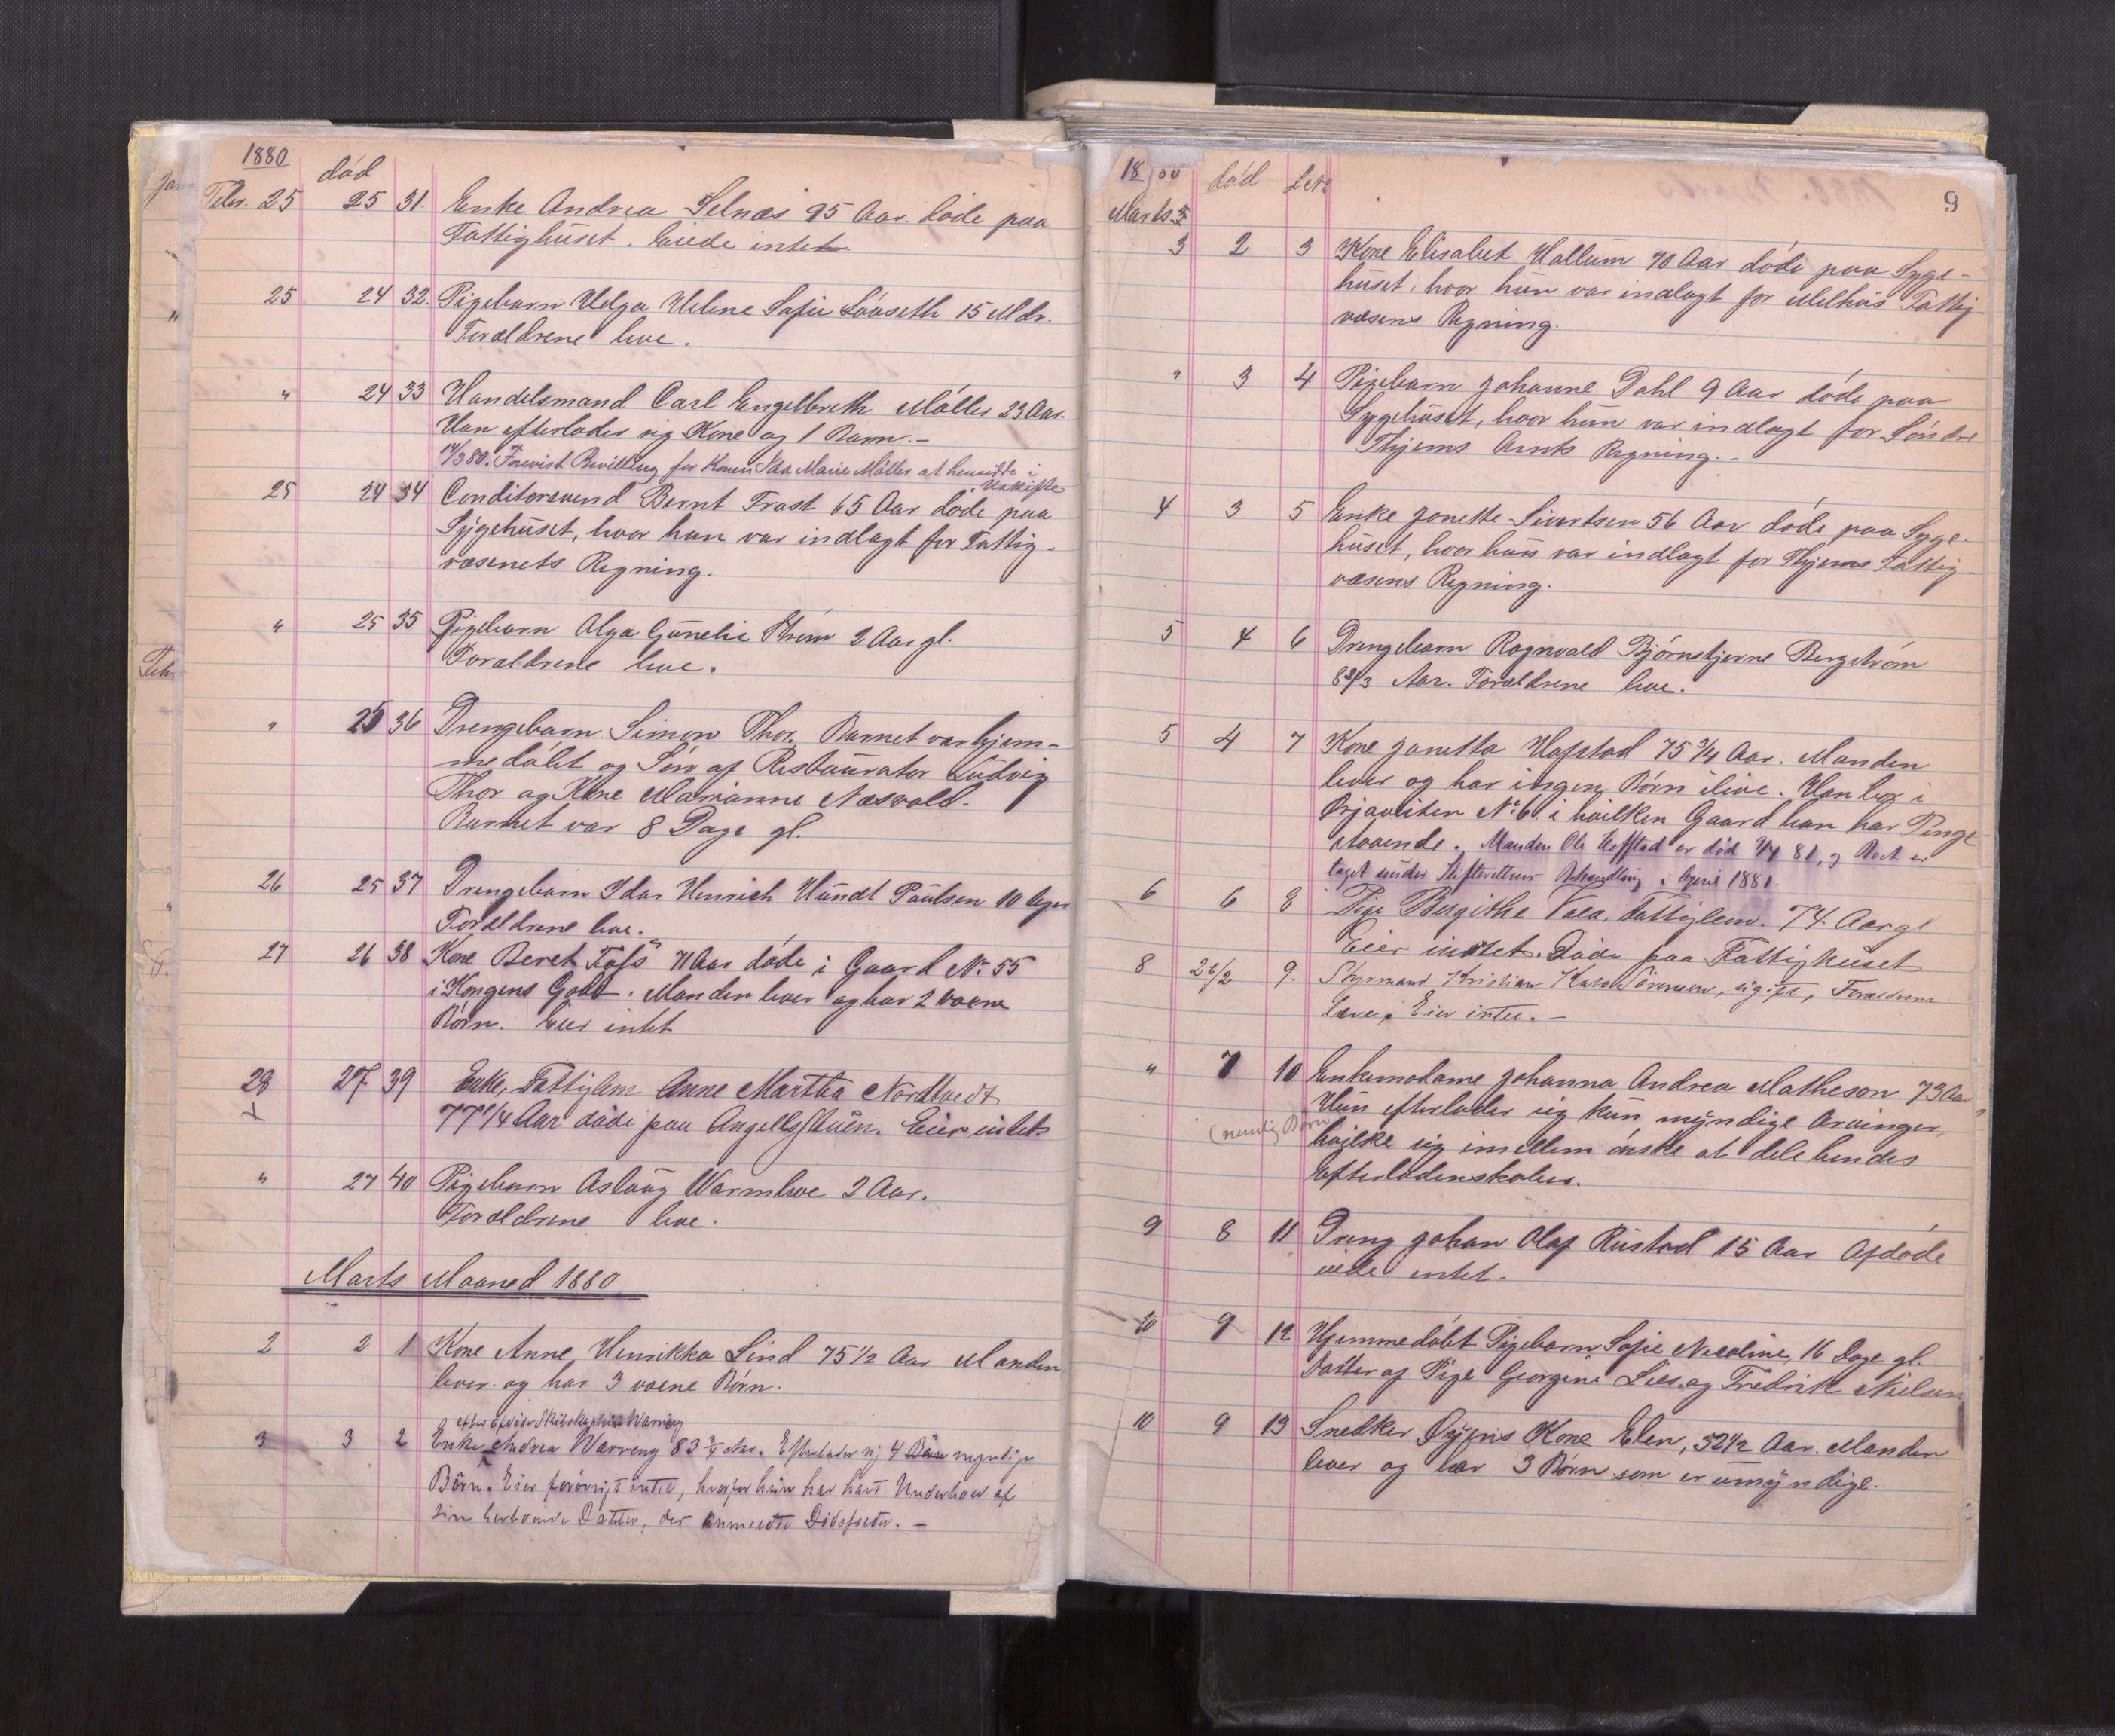 1880
død
Febr. 25 25 31. Enke Andrea Selnæs 95 Aar. døde paa
Fattighuset. Eiede intet
25 24 32. Pigebarn Helga Helene Sofie Løvseth 15 Mdr.
Forældrene leve.
" 24 33 Handelsmand Carl Engelbreth Møller 23 Aar.
Han efterlader sig Kone og 1 Barn. -
Forevist Bevilling for Konen Ida Marie Møller at hensidde i
Uskifte
25 24 34 Conditorsvend Bernt Trast 65 Aar døde paa
Sygehuset, hvor han var indlagt for Fattig-
væsenets Regning.
" 25 35 Pigebarn Olga Gunelie Strøm 2 Aar gl.
Forældrene leve.
" 25 36 Drengebarn Simon Thor. Barnet var hjem-
medøbt og Søn af Restauratør Ludvig
Thor og Kone Marianne Næsvold.
Barnet var 8 Dage gl.
26 25 37 Drengebarn Idar Henrich Hundt Paulsen 10 Uger
Forældrene leve.
27 26 38 Kone Beret Foss 71 Aar døde i Gaard No 55
i Kongens Gade. Manden lever og har 2 voxne
Børn. Eier intet
28 27 39 Enke, Fattiglem Anne Martha Nordtvedt
77 1/4 Aar døde paa Angells Stuen. Eier intet.
" 27 40 Pigebarn Aslaug Warmboe 2 Aar.
Forældrene leve.
Marts Maaned 1880
2 2 1 Kone Anne Henrikka Lind 75 1/2 Aar Manden
lever og har 3 voxne Børn.
efter afdøde Skibskaptein Warreng
3 3 2 Enke Andrea Warreng 83 3/4 Aar. Efterlader sig 4 myndige
Børn. Eier forøvrigt intet, hvorfor hun har havt Underhold af
sin herboende Datter, der anmeldte Dødsfaldet. -
1880 død 9
Marts
3 2 3 Kone Elisabet Hallum 70 Aar døde paa Syge-
huset, hvor hun var indlagt for Melhus Fattig-
væsens Regning.
" 3 4 Pigebarn Johanne Dahl 9 Aar døde paa
Sygehuset, hvor hun var indlagt for Søndre
Thjems Amts Regning. -
4 3 5 Enke Jonette Sivertsen 56 Aar døde paa Syge-
huset, hvor hun var indlagt for Thjems Fattig-
væsens Regning.
5 4 6 Drengebarn Ragnvald Bjørnstjerne Bergstrøm
8 2/3 Aar. Forældrene leve.
5 4 7 Kone Jonetta Hofstad 75 3/4 Aar. Manden
lever og har ingen Børn ilive. Han bor i
Ørjaveiten No 6 i hvilken Gaard han har Penge
staaende. Manden Ole Hoffstad er død 81, og Boet er
taget under Skifterettens Behandling i April 1881.
6 6 8 Pige Bergithe Vaea, Fattiglem. 74 Aar gl
Eier intet. Døde paa Fattighuset
8 26/2 9. Styrmand Kristian Sørensen, ugift, Forældrene
leve. Eier intet. -
" 7 10 Enkemadame Johanna Andrea Matheson 73 Aar
Hun efterlader sig kun myndige Arvinger,
(nemlig Børn
hvilke sig imellem ønske at dele hendes
Efterladenskaber.
9 8 11 Dreng Johan Olaf Rustad 15 Aar Afdøde
eiede intet.
10 9 12 Hjemmedøbt Pigebarn Sofie Nicoline, 16 Dage gl.
Datter af Pige Georgine Lies og Fredrik Nielsen
10 9 13 Snedker Øyens Kone Elen, 52 1/2 Aar. Manden
lever og har 3 Børn som er umyndige.